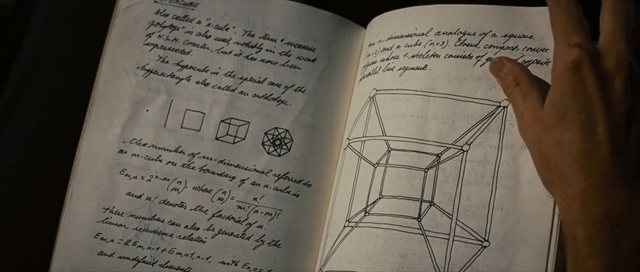 also called a "n-cube". The term "measure
polytope" is also used, notably in the work
of H.S.M. Coxeter, but it has now been
superseded.
The hypercube is the special case of the
hyperrectangle also called an orthotope.
the number of m-dimensional referred to
as m-cube on the boundary of an n-cube is
Em,n = 2^n-m (n m), where (n m) = n! / m!(n-m)!
and n! denotes the factorial of n.
these numbers can also be generated by the
linear recurrence relation
Em,n = 2Em,n-1 + Em-1,n-1, with E0,0 = 1
and undefined elements
an n-dimensional analogue of a square
(n=2) and a cube (n=3). Closed, compact, convex
figure whose 1-skeleton consists of opposite
parallel line segments.